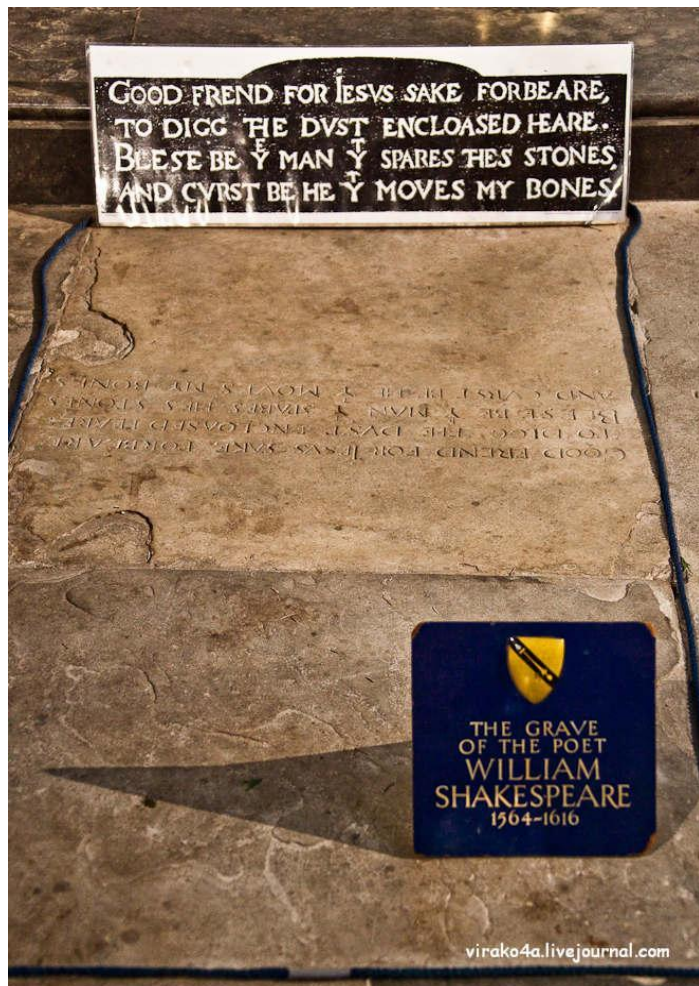 GOOD FREND FOR IESVS SAKE FORBEARE,
TO DIGG THE DVST ENCLOASED HEARE.
BLESE BE Yᴱ MAN Yᵀ SPARES THES STONES
AND CVRST BE HE Yᵀ MOVES MY BONES.
GOOD FREND FOR IESVS SAKE FORBEARE
TO DIGG THE DVST ENCLOASED HEARE
BLESE BE Yᴱ MAN Yᵀ SPARES THES STONES
AND CVRST BE HE Yᵀ MOVES MY BONES
THE GRAVE
OF THE POET
WILLIAM
SHAKESPEARE
1564-1616
virako4a.livejournal.com